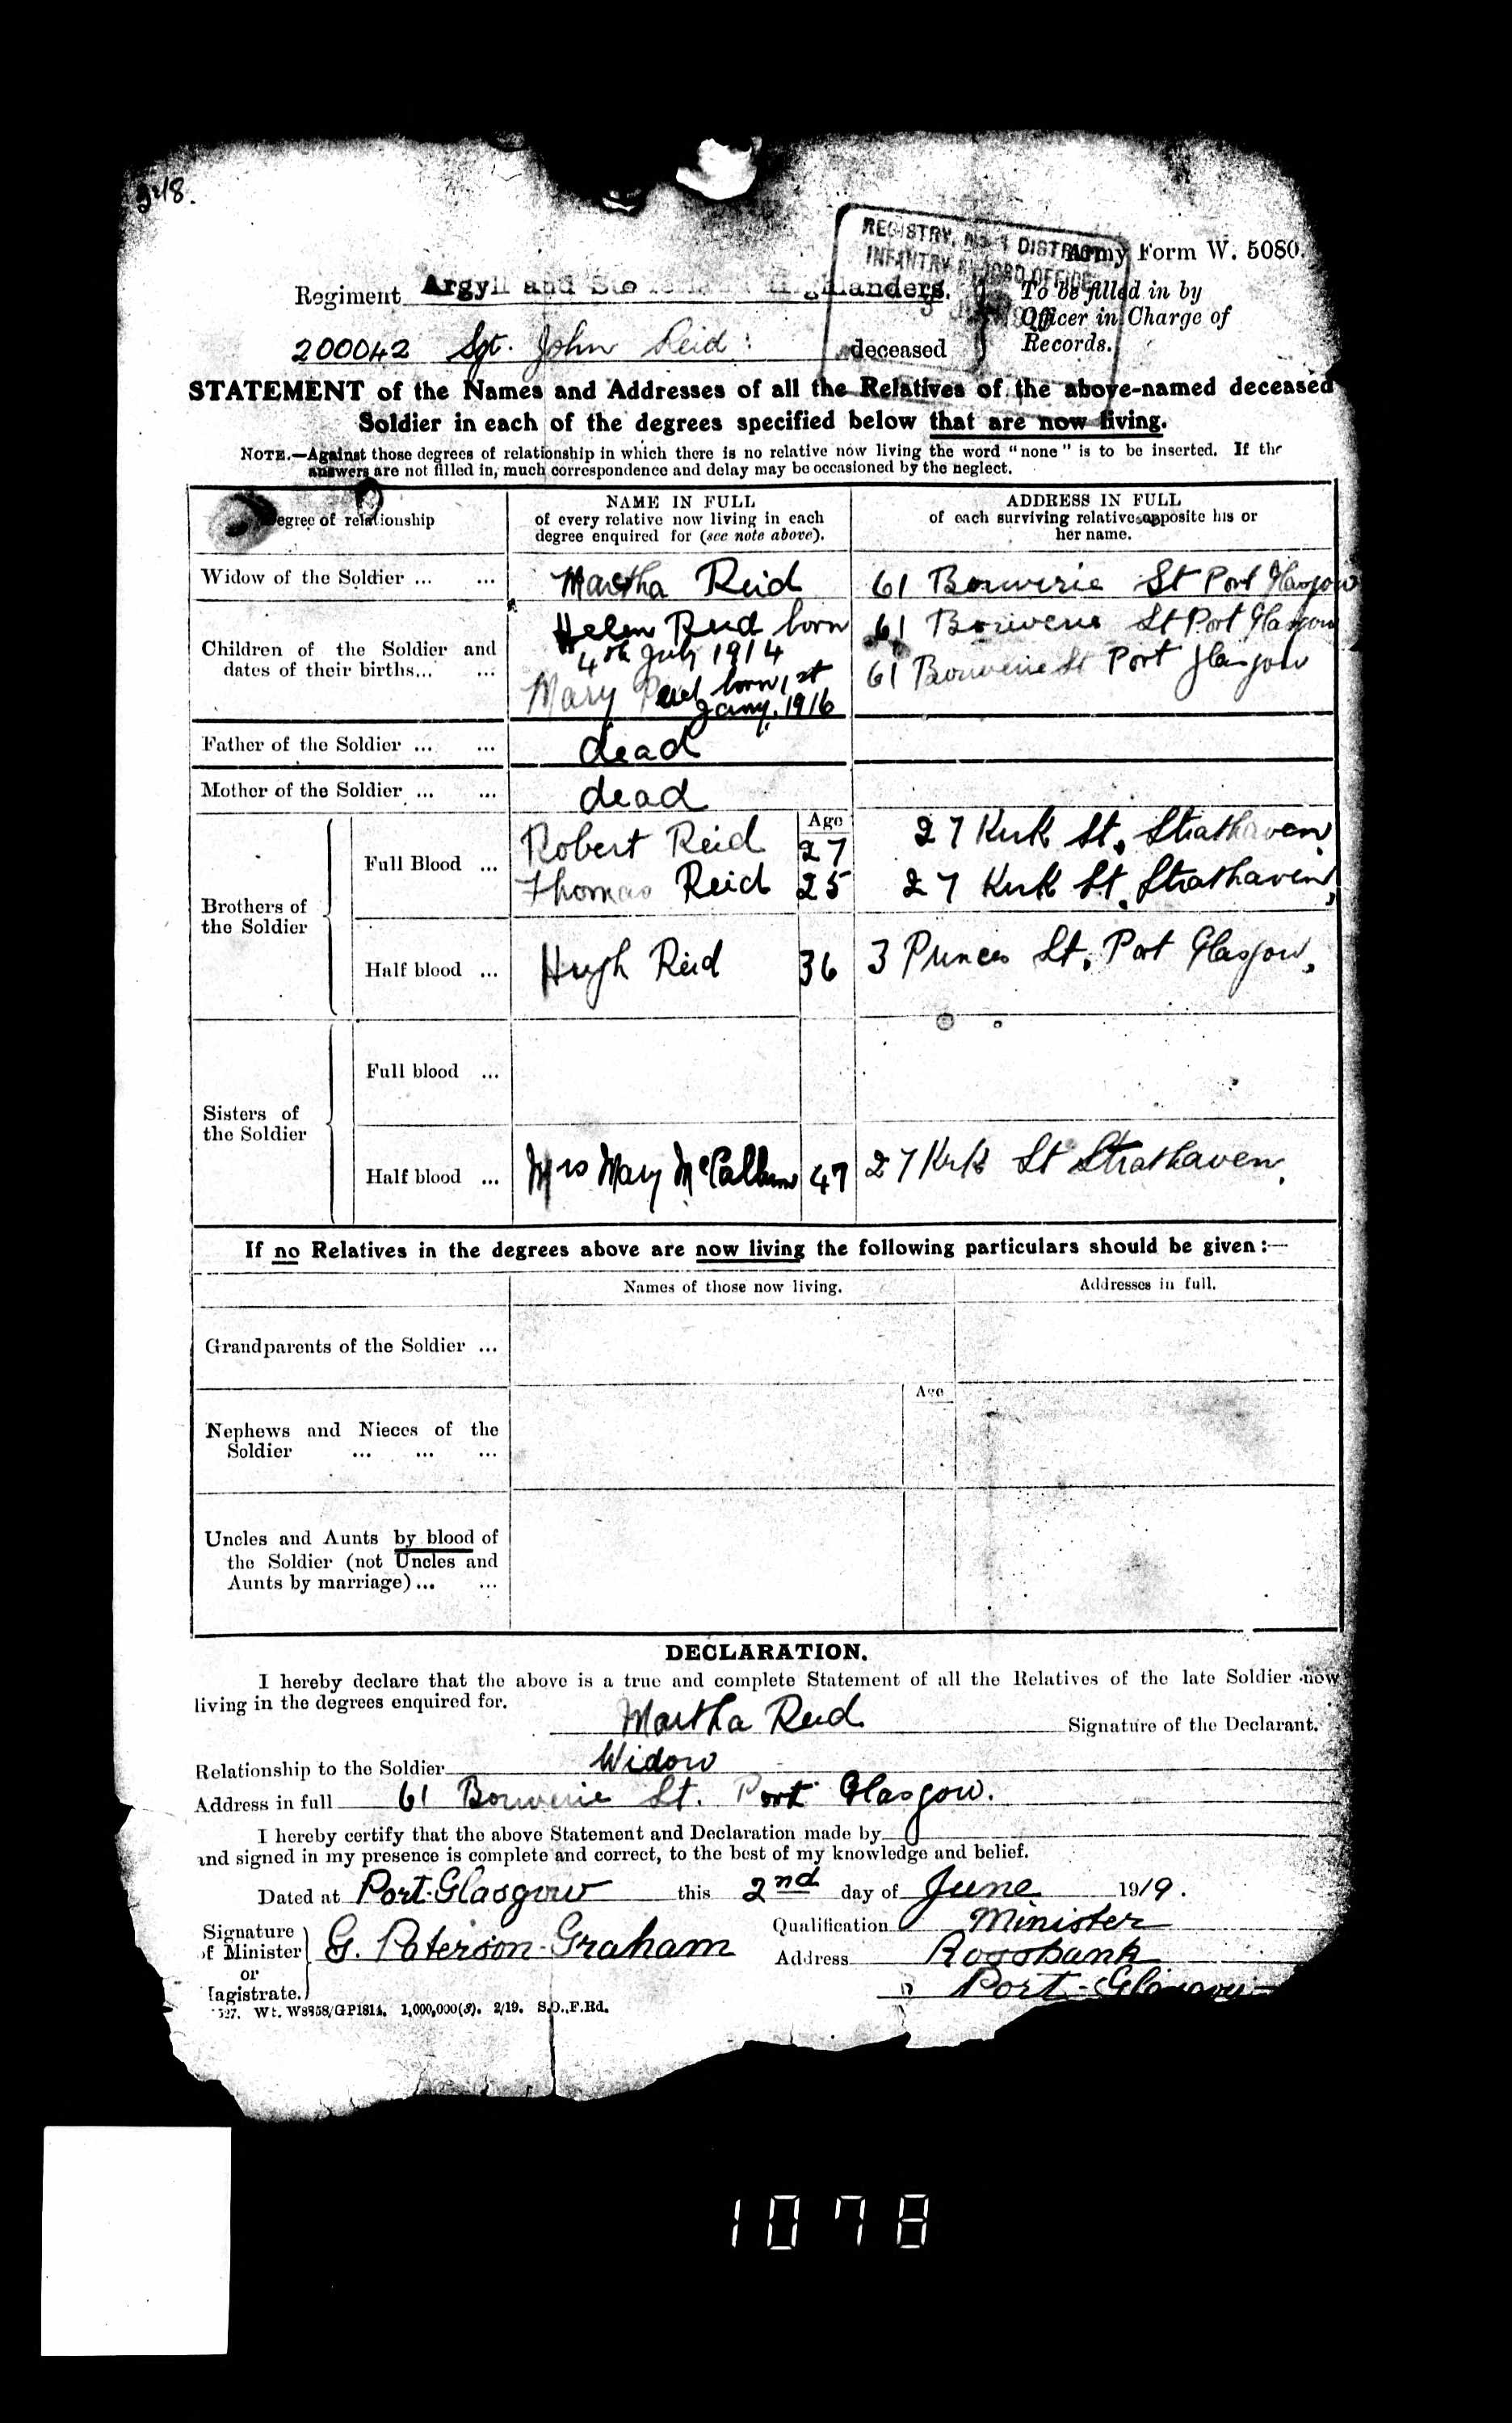 248.
REGISTRY, No. 1 DISTRICT
INFANTRY RECORD OFFICE
Army Form W. 5080.
Regiment Argyll and Highlanders.
To be filled in by
Officer in Charge of
Records.
200042 Sgt. John Reid: deceased
STATEMENT of the Names and Addresses of all the Relatives of the above-named deceased
Soldier in each of the degrees specified below that are now living.
NOTE.—Against those degrees of relationship in which there is no relative now living the word "none" is to be inserted. If the
answers are not filled in, much correspondence and delay may be occasioned by the neglect.
egree of relationship
NAME IN FULL
of every relative now living in each
degree enquired for (see note above).
ADDRESS IN FULL
of each surviving relative opposite his or
her name.
Widow of the Soldier ... ... Martha Reid 61 Bouverie St Port Glasgow
Children of the Soldier and
dates of their births... ...
Helen Reid born 61 Bouverie St Port Glasgow
4th July 1914
Mary Reid born 1st 61 Bouverie St Port Glasgow
Jany. 1916
Father of the Soldier ... ... dead
Mother of the Soldier ... ... dead
Age
Brothers of
the Soldier
Full Blood ...
Robert Reid 27 27 Kirk St, Strathaven,
Thomas Reid 25 27 Kirk St, Strathaven,
Half blood ... Hugh Reid 36 3 Princes St, Port Glasgow,
Sisters of
the Soldier
Full blood ...
Half blood ... Mrs Mary McCallum 47 27 Kirk St Strathaven.
If no Relatives in the degrees above are now living the following particulars should be given:—
Names of those now living. Addresses in full.
Grandparents of the Soldier ...
Age
Nephews and Nieces of the
Soldier ... ... ...
Uncles and Aunts by blood of
the Soldier (not Uncles and
Aunts by marriage)... ...
DECLARATION.
I hereby declare that the above is a true and complete Statement of all the Relatives of the late Soldier now
living in the degrees enquired for.
Martha Reid Signature of the Declarant.
Relationship to the Soldier Widow
Address in full 61 Bouverie St. Port Glasgow.
I hereby certify that the above Statement and Declaration made by
and signed in my presence is complete and correct, to the best of my knowledge and belief.
Dated at Port-Glasgow this 2nd day of June 1919.
Signature
of Minister
or
Magistrate.
G. Paterson-Graham
Qualification Minister
Address Rossbank
Port-Glasgow
527. Wt. W8958/GP1814. 1,000,000(9). 2/19. S.O.,F.Rd.
1078